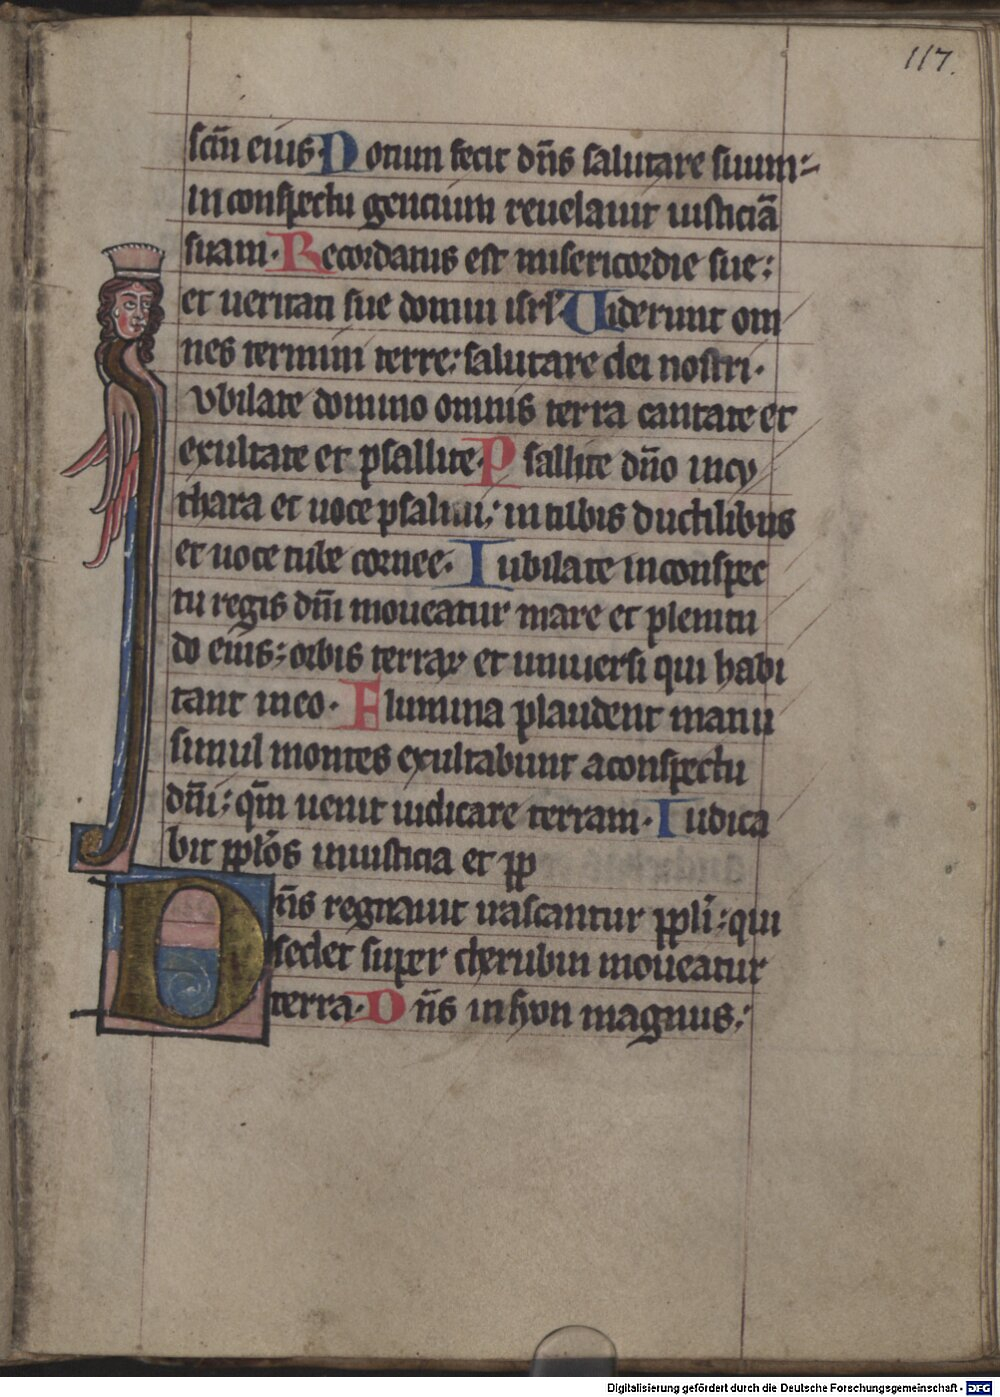 117.
scm̄ eius. Notum fecit dn̄s salutare suum:
in conspectu gencium reuelauit iusticiā
suam. Recordatus est misericordie sue:
et ueritati sue domui isrl̄. Uiderunt om
nes termini terre: salutare dei nostri.
Iubilate domino omnis terra cantate et
exultate et psallite. Psallite dn̄o in cy
thara et uoce psalmi: in tubis ductilibus
et uoce tube cornee. Iubilate in conspec
tu regis dn̄i moueatur mare et plenitu
do eius: orbis terraꝝ et uniuersi qui habi
tant in eo. Flumina plaudent manu
simul montes exultabunt a conspectu
dn̄i: qm̄ uenit iudicare terram. Iudica
bit pp̄los in iusticia et pp
Dn̄s regnauit irascantur ppl̄i: qui
sedet super cherubin moueatur
terra. Dn̄s in syon magnus:
Digitalisierung gefördert durch die Deutsche Forschungsgemeinschaft - DFG